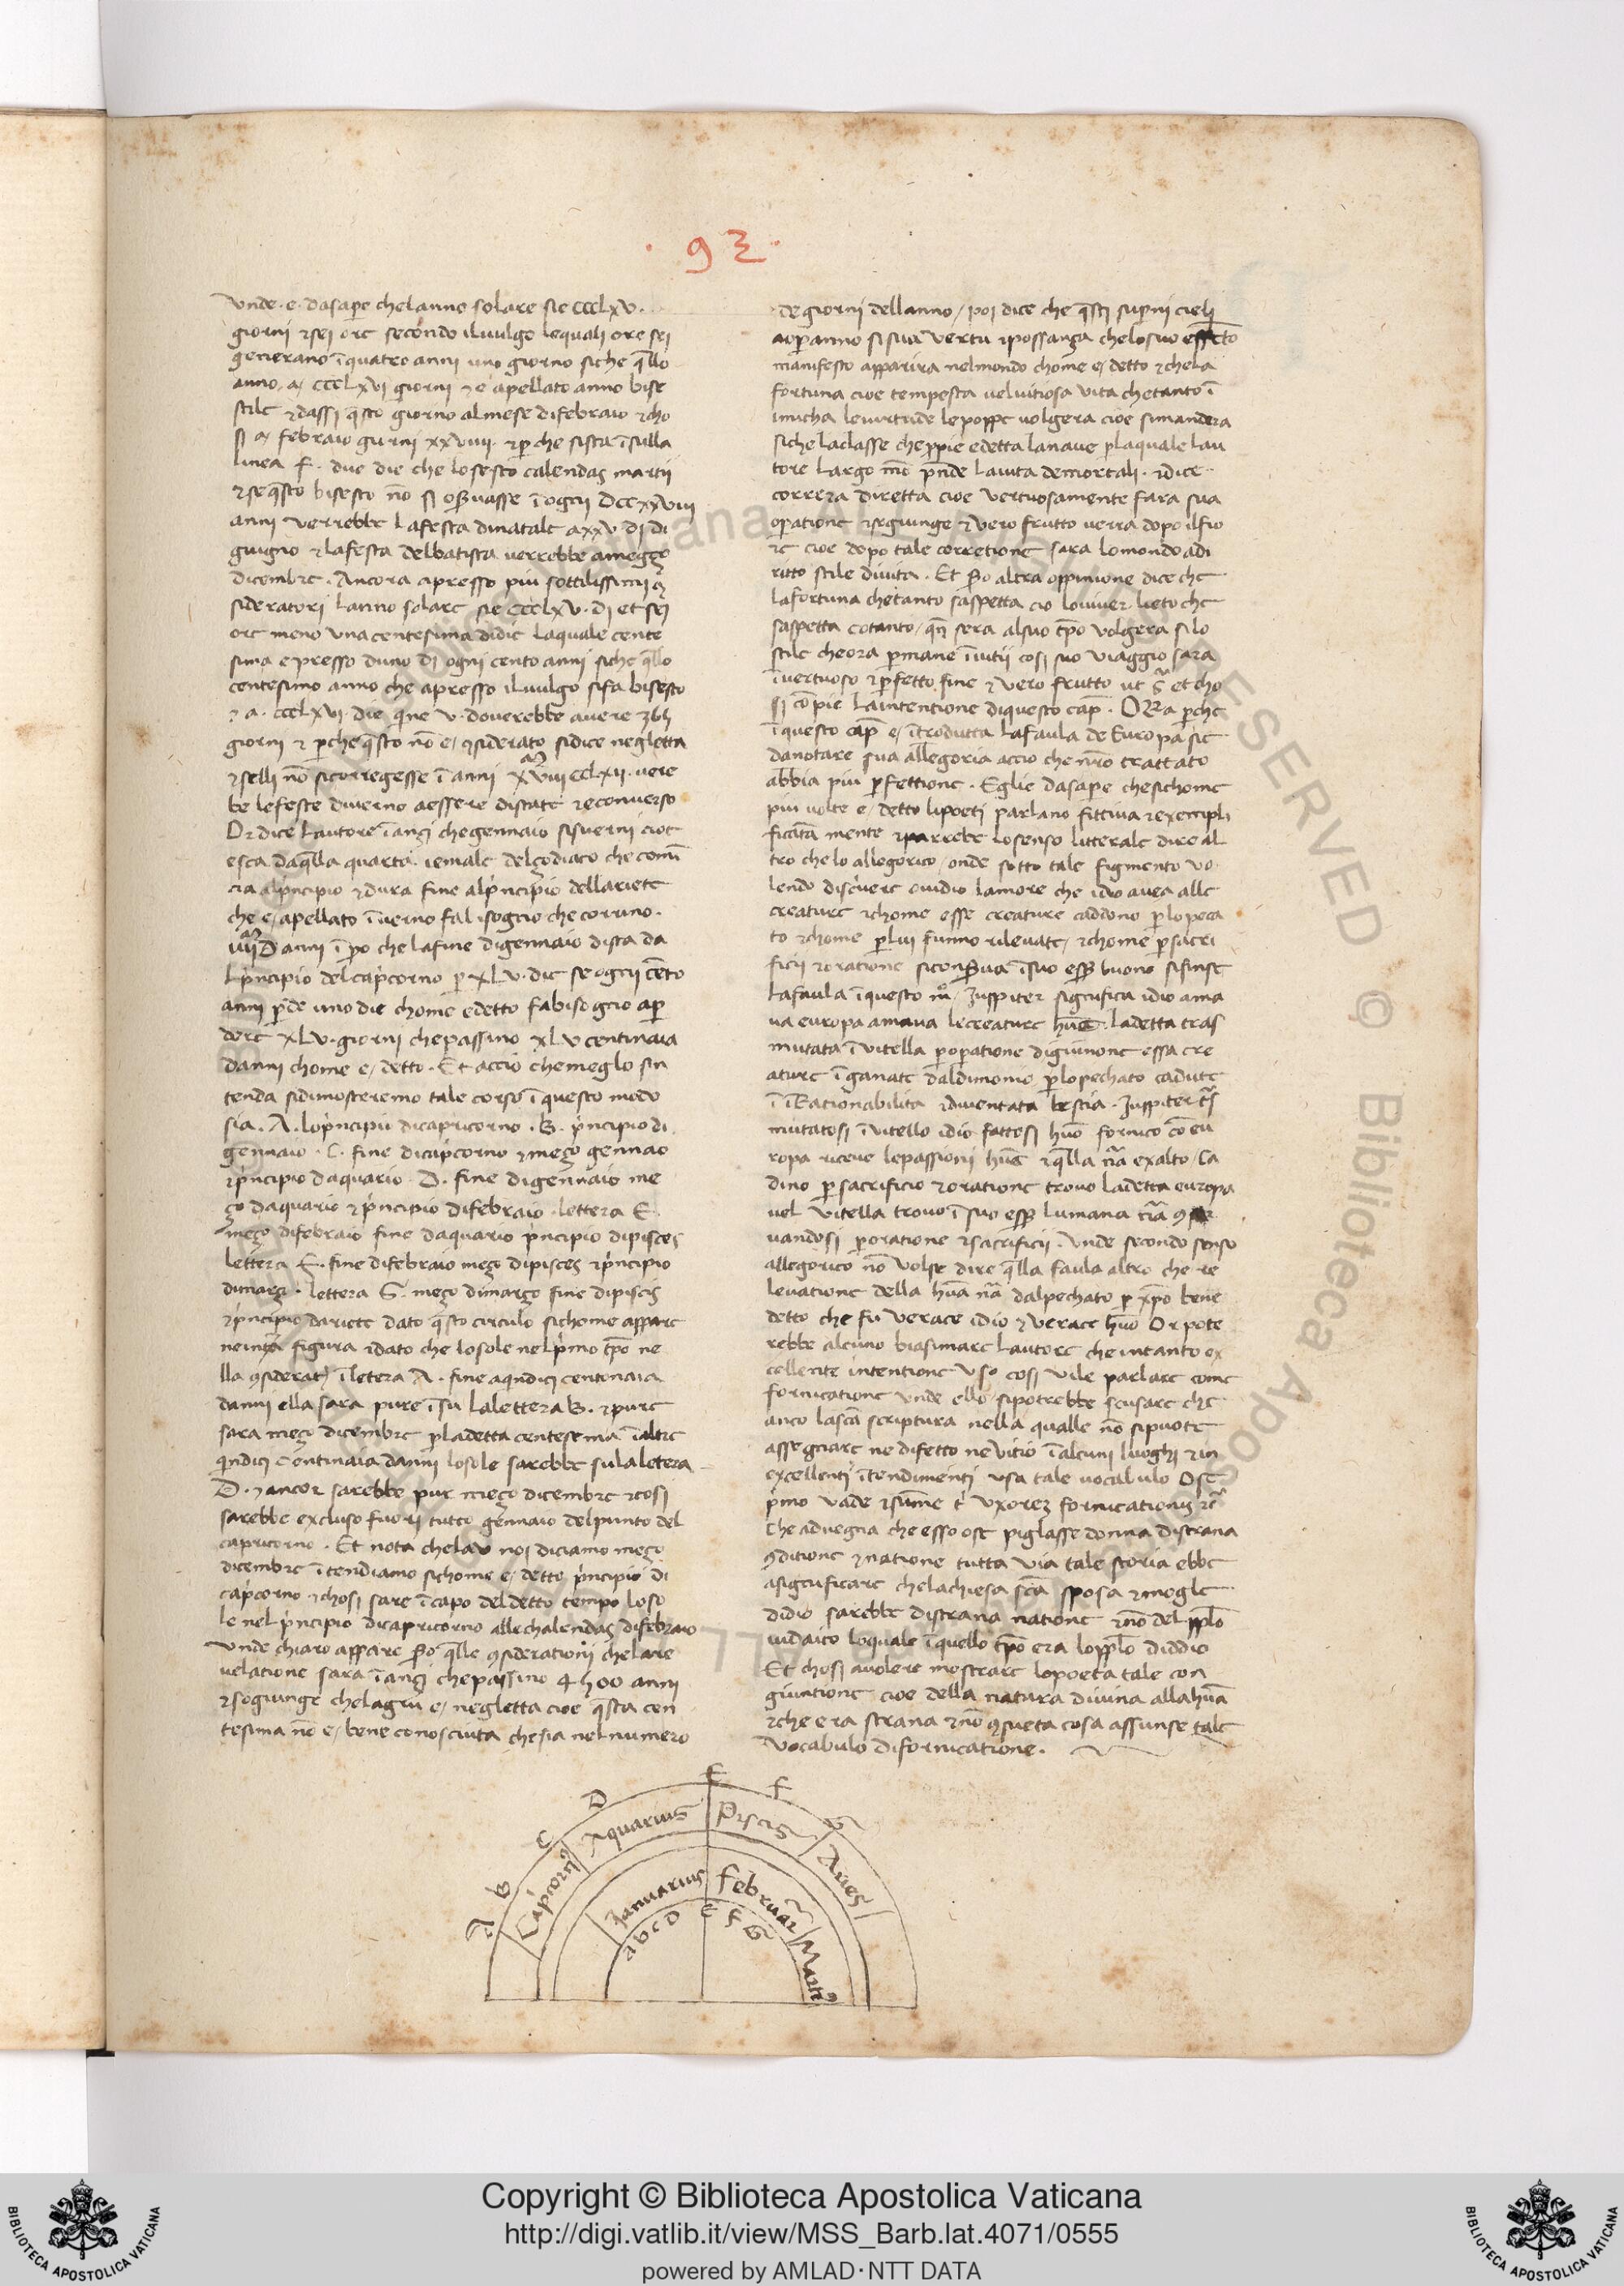 · 93 ·
Unde · e · dasape chel anno solare sie CCCLXV ·
giorni ⁊ sei ore secondo il vulgo lequali ore sei
generano ĩ quatro anni uno giorno siche q̃llo
anno · a / CCCLXVI giorni ⁊ e apellato anno bise
stile ⁊ dassi q̃sto giorno al mese di febraio ⁊ cho
si a / febraio giurni XXVIIII · ⁊ p̱che sista ĩ sulla
linea F · due die che lo sesto calendas martii
⁊ se q̃sto bisesto nõ si oßuasse ĩ ogni DCCXXVIII
anni verrebbe la festa di natale a XXV di di
giugno ⁊ la festa del batista verrebbe a meço
dicembre · Ancora apresso piu sottilissimi ꝯ
sideratori lanno solare sie CCCLXV · di et sei
ore meno una centesima didie laquale cente
sima e presso duno di ogni cento anni siche q̃llo
centesimo anno che apresso il vulgo sifa bisesto
⁊ a · CCCLXVI · die q̃ne v · doverebbe avere 365
giorni ⁊ p̱che q̃sto nõ e / ꝯsiderato sidice negletta
⁊ selli nõ si corregesse ĩ anni CCLXII · vere
be le feste di verno a essere di state ⁊ econverso
Or dice lautore ĩ anzi che gennaio si sverni cioe
esca da q̃lla quarta iemale del çodiaco che comĩ
cia al p̍ncipio ⁊ dura fine al p̍ncipio dellariete
che e / apellato ĩ verno fa bisogno che corrino ·
anni ĩ p̱o che la fine di gennaio dista da
l p̍ncipio del cap̍corno p̱ XLV · die se ogni cẽto
anni p̱de uno die chome e detto fa bisogno a p̱
dere XLV · giorni che passino XLV centinaia
danni chome e / detto · Et accio che meglo sin
tenda sidimosteremo tale corso ĩ questo modo
sia · A · lo p̍ncipii di capricorno · B · p̍ncipio di
gennaio · C · fine di cap̍corno ⁊ meço gennaio
⁊ p̍ncipio daquario · D · fine di gennaio me
ço daquario ⁊ p̍ncipio di febraio · lettera E ·
meço di febraio fine daquario p̍ncipio di pisces
lettera F · fine di febraio meço di pisces ⁊ p̍ncipio
di março · lettera G · meço di março fine di piscis
⁊ p̍ncipio dariete dato q̃sto circulo sichome appare
figura ⁊ dato che lo sole nel p̍mo tp̃o ne
lla ꝯsideratõ ĩ letera A · fine a q̍ndici centonaia
danni ella sara pure ĩ su la lettera B · ⁊ pure
sara meço dicembre p̱ la detta centesema ĩ altre
q̍ndici centinaia danni lo sole sarebbe su la letera
D · ⁊ ancor sarebbe pur meço dicembre ⁊ cosi
sarebbe excluso fuori tutto gennaio del punto del
capricorno · Et nota che la v noi diciamo meço
dicembre ĩ tendiamo sichome e / detto p̍ncipio di
cap̍corno ⁊ chosi sare ĩ capo del detto tempo lo so
le nel p̍ncipio di capricorno alle chalendas di febraio
Unde chiaro appare ßo q̃lle ꝯsiderationi che la re
velatione sara ĩ anzi che passino 4500 anni
⁊ sogiunge che lagiu e / negletta cioe q̃sta cen
tesima nõ e / bene conosciuta che sia nel numero
de giorni dell anno / poi dice che q̃sti sup̱ni cieli
aop̱anno si sua vertu ⁊ possança che lo suo effetto
manifesto apparira nel mondo chome e / detto ⁊ che la
fortuna cioe tempesta vel vitiosa vita che tanto ĩ
imicha le virtude le poppe volgera cioe simandera
siche la classe che p̱pie e detta la nave p̱ laquale lau
tore largo mõ p̃nde la vita de mortali · ⁊ dice
correra diretta cioe vertuosamente fara sua
op̱atione ⁊ segiunge ⁊ vero frutto verra dopo il fio
re cioe dopo tale corretione sara lo mondo a di
ritto stile di vita · Et ßo altra oppinione dice che
la fortuna che tanto saspetta cio lo viver lieto che
saspetta cotanto / qñ sera al suo tp̃o volgera si lo
stile che ora p̱mane ĩ vitii cosi suo viaggio sara
ĩ vertuoso ⁊ p̱fetto fine ⁊ vero frutto ut s̃ et cho
si cõpie la intentione di questo cap̃ · ORa p̱che
ĩ questo cap̃ e / ĩtrodutta la faula de Europa sie
da notare sua allegoria accio che nr̃o trattato
abbia piu p̱fettione · Eglie dasape che sichome
piu volte e / detto li poeti parlano fittiva ⁊ exempli
ficata mente ⁊ parrebe lo senso litterale dire al
tro che lo allegorico / onde sotto tale figmento vo
lendo discivere ovidio lamore che idio avea alle
creature ⁊ chome esse creature caddono p̱ lo peca
to ⁊ chome p̱ lui funno rilevate / ⁊ chome p̱ sacri
ficii ⁊ oratione si conßva ĩ suo esse buono si finse
la faula ĩ questo m̊ / Iuppiter significa idio ama
va europa amava le creature hũe · la detta tras
mutata ĩ vitella p̱ op̱atione di giunone essa cre
ature ĩ ganate dal dimonio p̱ lo pechato cadute
ĩ iRationabilita ⁊ diventata bestia · Iuppiter
mutatosi ĩ vitello idio fattosi huõ fornico cõ eu
ropa riceve le passioni hũe ⁊ q̃lla nr̃a exalto / Ca
dino p̱ sacrificio ⁊ oratione trovo la detta europa
vel vitella trovo ĩ suo esse lumana nr̃a ꝯß
vandosi p̱ oratione ⁊ sacrificii · Unde secondo senso
allegorico nõ volse dire q̃lla faula altro che re
levatione della hũa nã dal pechato p̱ xp̃o bene
detto che fu verace idio ⁊ verace huõ Or pote
rebbe alcuno biasimare lautore che in tanto ex
cellente intentione uso cosi vile parlare come
fornicatione unde ello sipotrebbe scusare che
anco la scã scriptura nella qualle nõ si puote
assegnare ne difetto ne vitio ĩ alcuni luoghi ⁊ in
excellenti ĩtendimenti usa tale vocabulo Ose
p̍mo vade ⁊ sume t̍ uxorez fornicationis
che advegna che esso ose piglasse donna di strana
ꝯditione ⁊ natione tutta via tale storia ebbe
a significare che la chiesa scã sposa ⁊ mogle
didio sarebbe di strana natione ⁊ nõ del pplo
iudaico loquale ĩ quello tp̃o era lo pplo diddio
Et chosi a volere mostrare lo poeta tale con
giuntione cioe della natura divina alla hũa
⁊ che era strana ⁊ nõ ꝯsueta cosa assunse tale
vocabulo di fornicatione ·
A B C D E F G
Cap̍corn9 Aquarius Piscis Aries
Januarius Februar̃ Marti9
a b c D E F G
Copyright © Biblioteca Apostolica Vaticana
http://digi.vatlib.it/view/MSS_Barb.lat.4071/0555
powered by AMLAD·NTT DATA
BIBLIOTECA APOSTOLICA VATICANA
BIBLIOTECA APOSTOLICA VATICANA